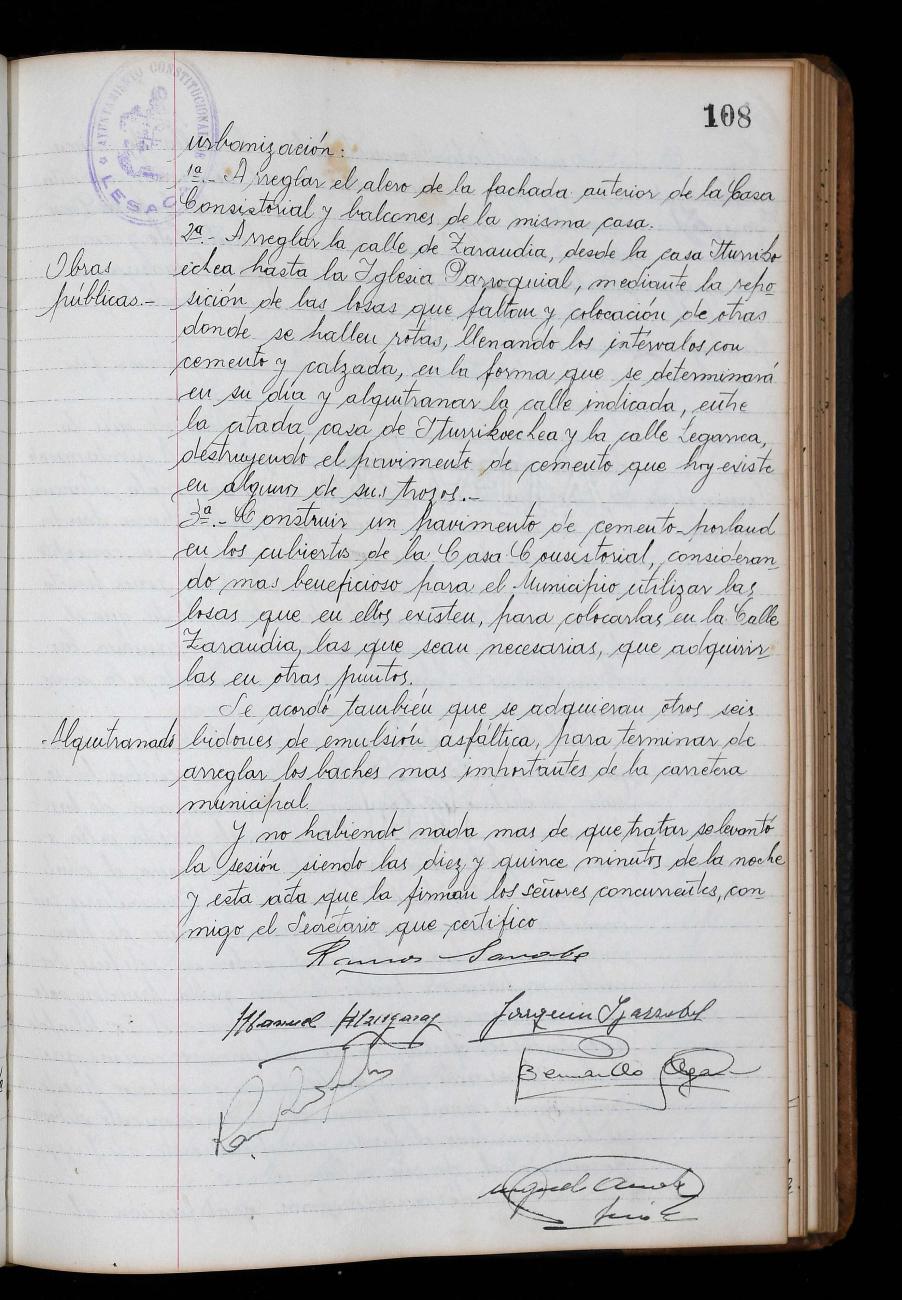 108
AYUNTAMIENTO CONSTITUCIONAL DE
LESACA
urbanización:
1ª.- Arreglar el alero de la fachada anterior de la Casa
Consistorial y balcones de la misma casa.
2ª.- Arreglar la calle de Zaraudia, desde la casa Iturriko
Obras
públicas.-
echea hasta la Iglesia Parroquial, mediante la repo-
sición de las losas que faltan y colocación de otras
donde se hallen rotas, llenando los intérvalos con
cemento y calzada, en la forma que se determinará
en su dia y alquitranar la calle indicada, entre
la citada casa de Iturrikoechea y la calle Leganea,
destruyendo el pavimento de cemento que hoy existe
en algunos de sus trozos.-
3ª.- Construir un pavimento de cemento-porland
en los cubiertos de la Casa Consistorial, consideran-
do mas beneficioso para el Municipio utilizar las
losas que en ellos existen, para colocarlas en la Calle
Zaraudia, las que sean necesarias, que adquirir-
las en otras puntos.
Se acordó también que se adquieran otros seis
Alquitranado
bidones de emulsión asfáltica, para terminar de
arreglar los baches mas importantes de la carretera
municipal.
Y no habiendo nada mas de que tratar se levantó
la sesión siendo las diez y quince minutos de la noche
y esta acta que la firman los señores concurrentes, con-
migo el Secretario que certifico
Ramos
Manuel
Joaquin
Bernardo
Miguel